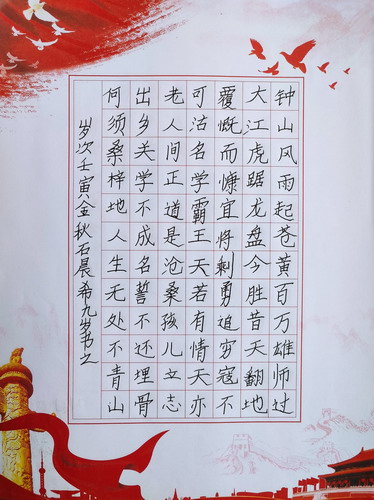 钟山风雨起苍黄百万雄师过
大江虎踞龙盘今胜昔天翻地
覆慨而慷宜将剩勇追穷寇不
可沽名学霸王天若有情天亦
老人间正道是沧桑孩儿立志
出乡关学不成名誓不还埋骨
何须桑梓地人生无处不青山
岁次壬寅金秋石晨希九岁书之